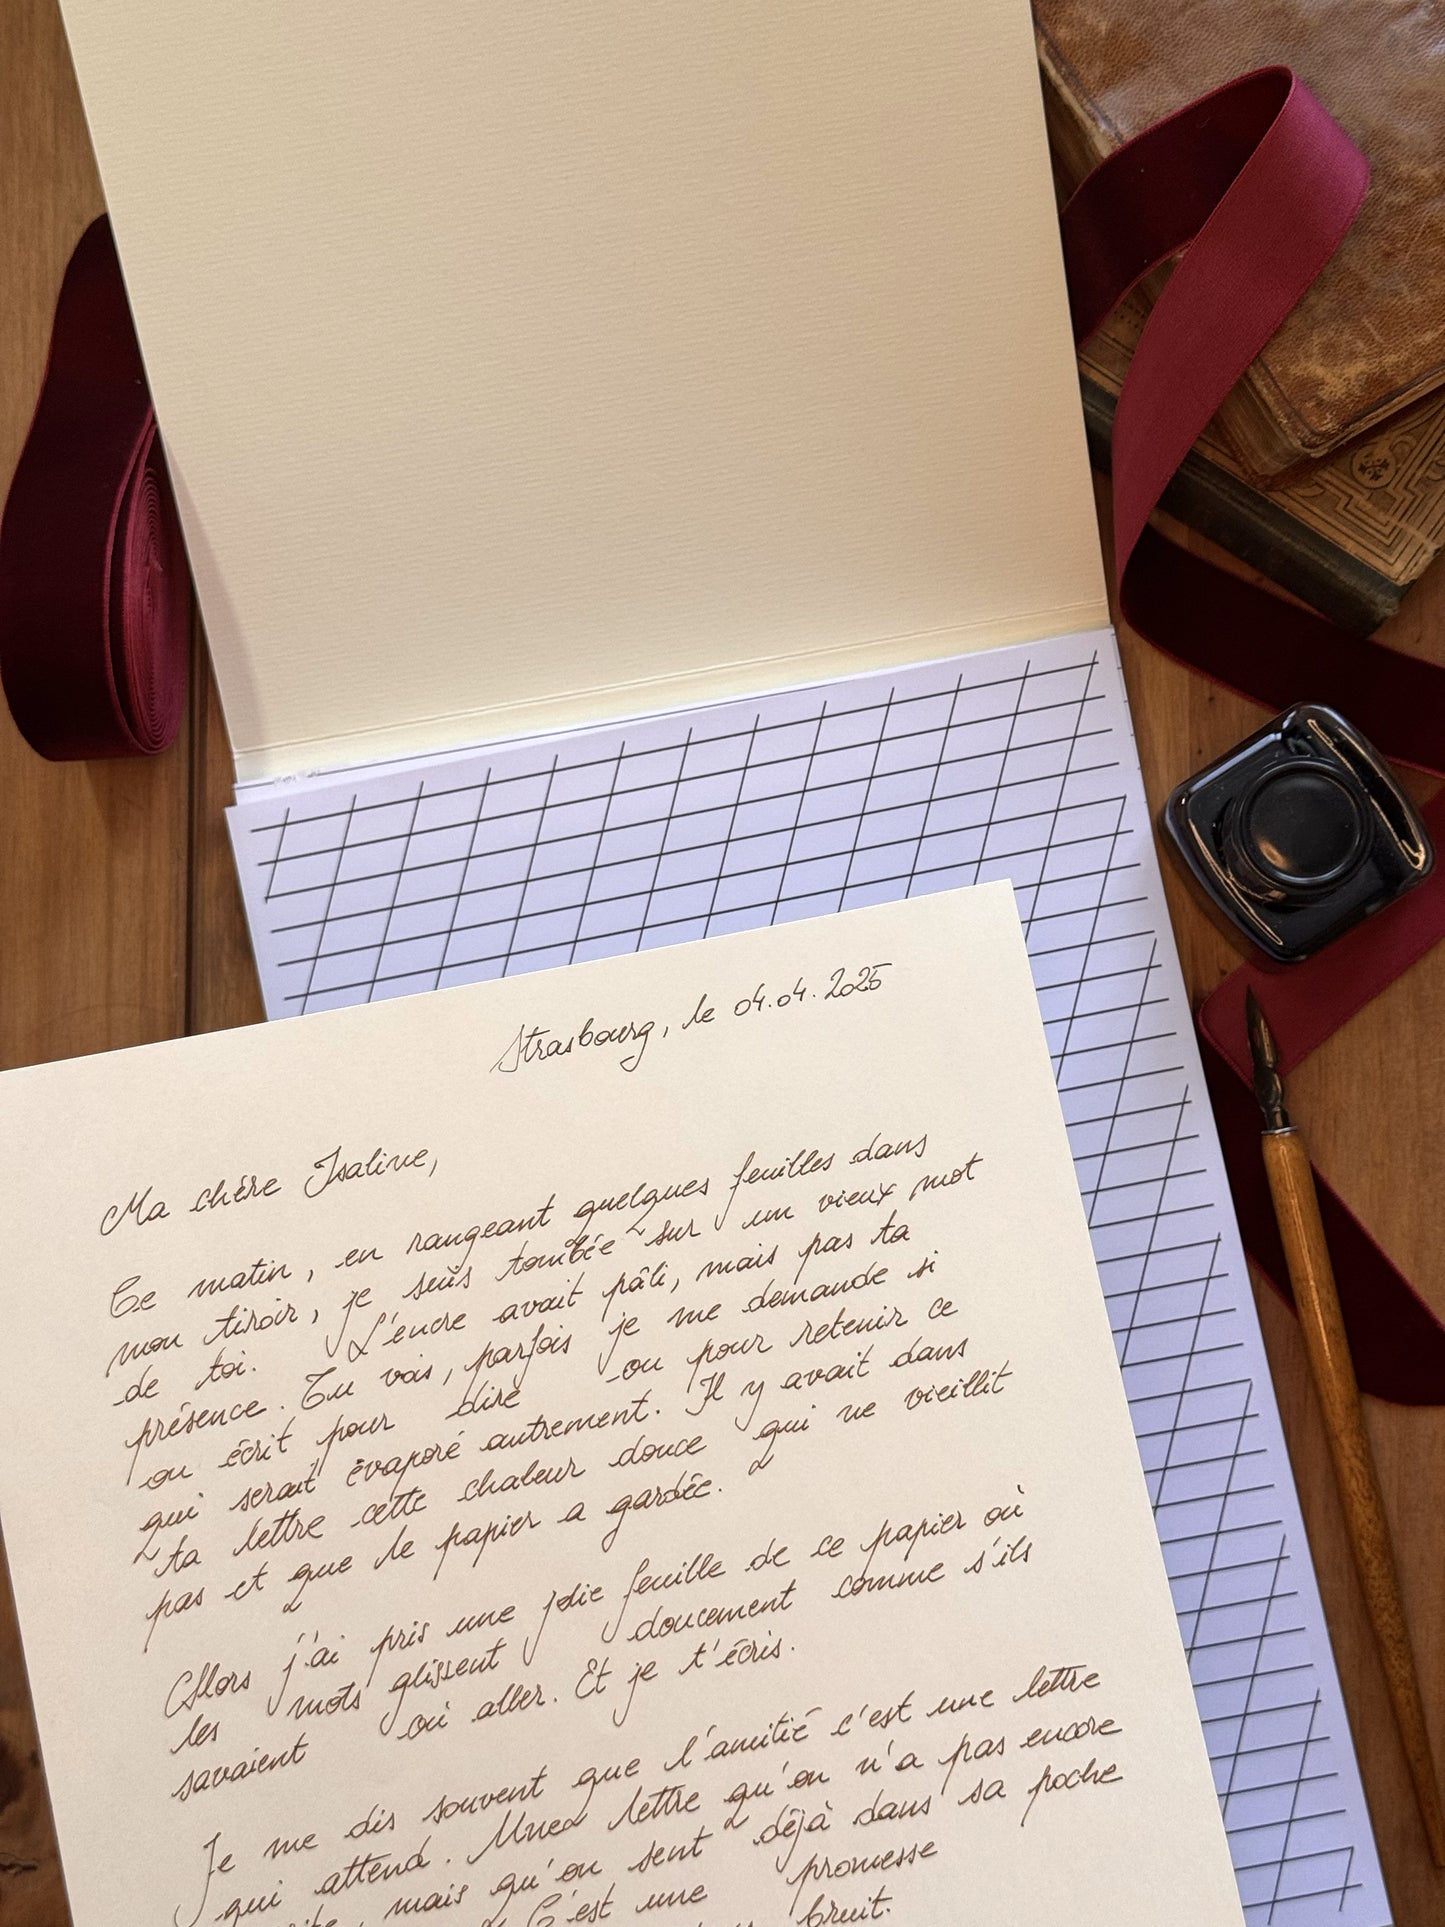 Strasbourg, le 04.04.2025
Ma chère Isaline,
Ce matin, en rangeant quelques feuilles dans
mon tiroir, je suis tombée sur un vieux mot
de toi. L'encre avait pâli, mais pas ta
présence. Tu vois, parfois je me demande si
on écrit pour dire ou pour retenir ce
qui serait évaporé autrement. Il y avait dans
ta lettre cette chaleur douce qui ne vieillit
pas et que le papier a gardée.
Alors j'ai pris une jolie feuille de ce papier où
les mots glissent doucement comme s'ils
savaient où aller. Et je t'écris.
Je me dis souvent que l'amitié c'est une lettre
qui attend. Une lettre qu'on n'a pas encore
mais qu'on sent déjà dans sa poche
C'est une promesse
bruit.